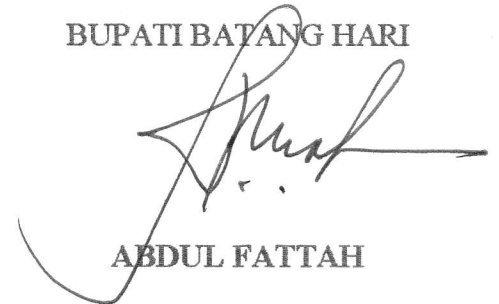 BUPATI BATANG HARI
ABDUL FATTAH